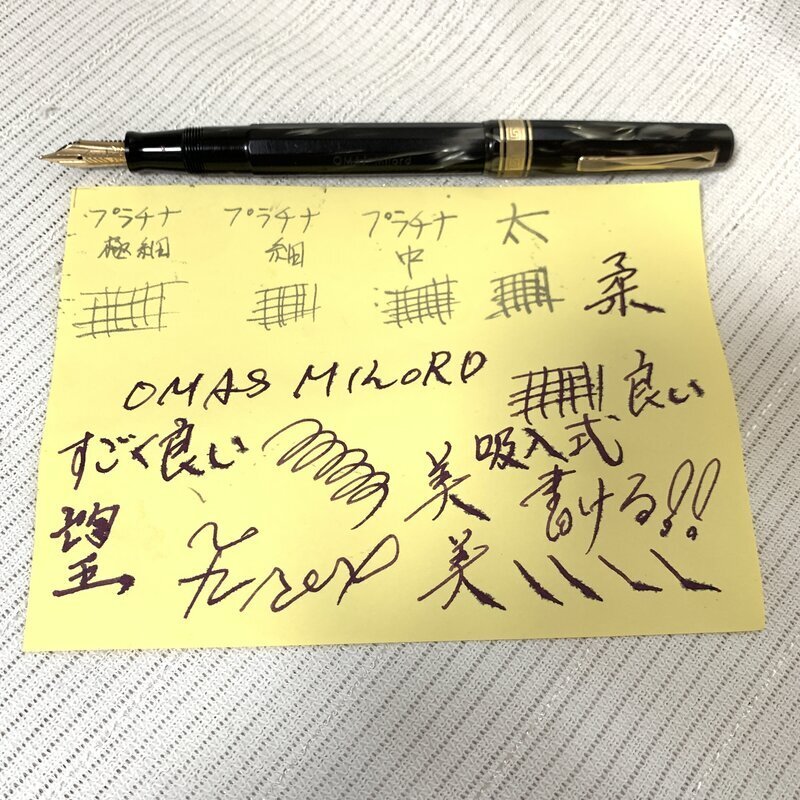 OMAS Milord
プラチナ 極細
プラチナ 細
プラチナ 中
太
柔
OMAS MILORD
良い
すごく良い
吸入式
美
書ける!!
美